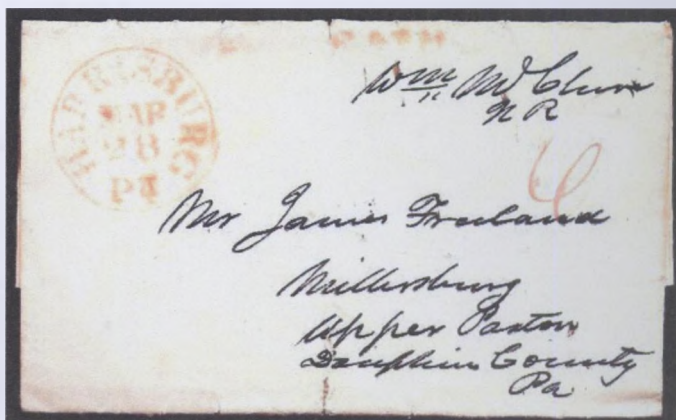 HARRISBURG
MAR
28
Pa
Wm McClure
N R
6
Mr James Freeland
Millersburg
Upper Paxton
Dauphin County
Pa